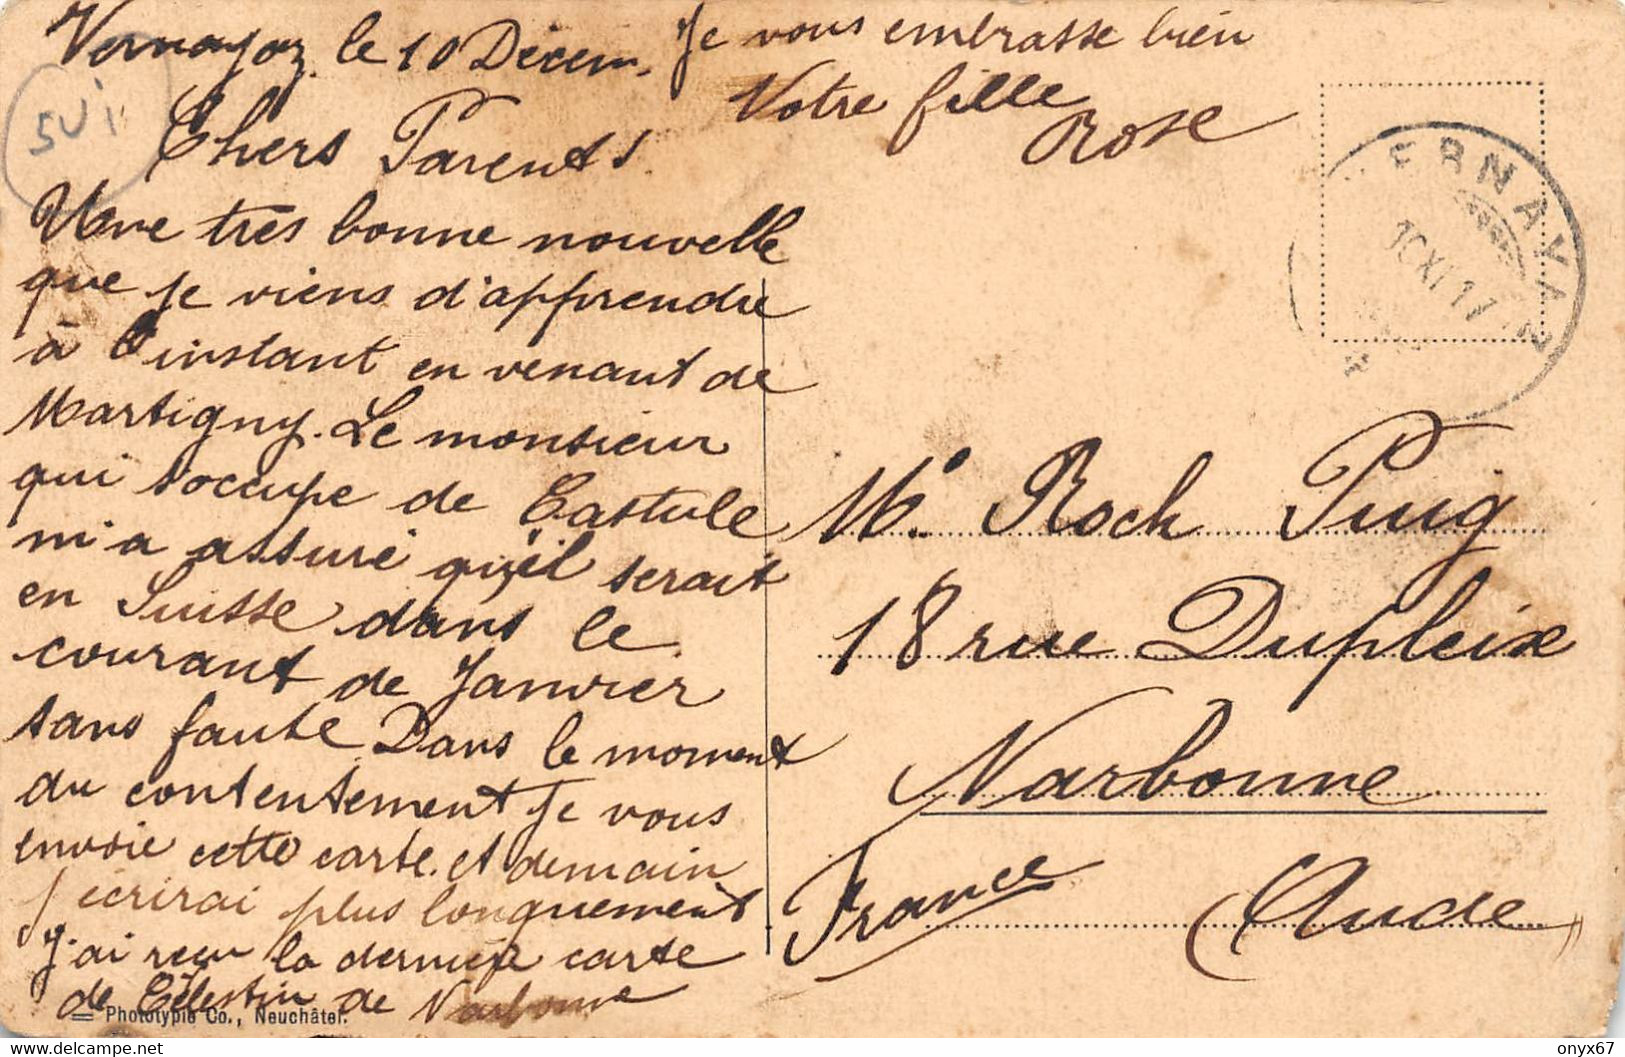 Vernayaz le 10 Décem.
Chers Parents.
Une très bonne nouvelle
que je viens d'apprendre
à l'instant en venant de
Martigny. Le monsieur
qui s'occupe de Castule
m'a assuré qu'il serait
en Suisse dans le
courant de Janvier
sans faute Dans le moment
du contentement je vous
envoie cette carte. et demain
j'écrirai plus longuement
J'ai reçu la dernière carte
de Célestin de Narbonne
Je vous embrasse bien
Votre fille
Rose
SUI
VERNAYAZ
10 XI 17
Mr. Roch Puig
18 rue Dupleix
Narbonne
France (Aude)
Phototypie Co., Neuchâtel.
delcampe.net
onyx67